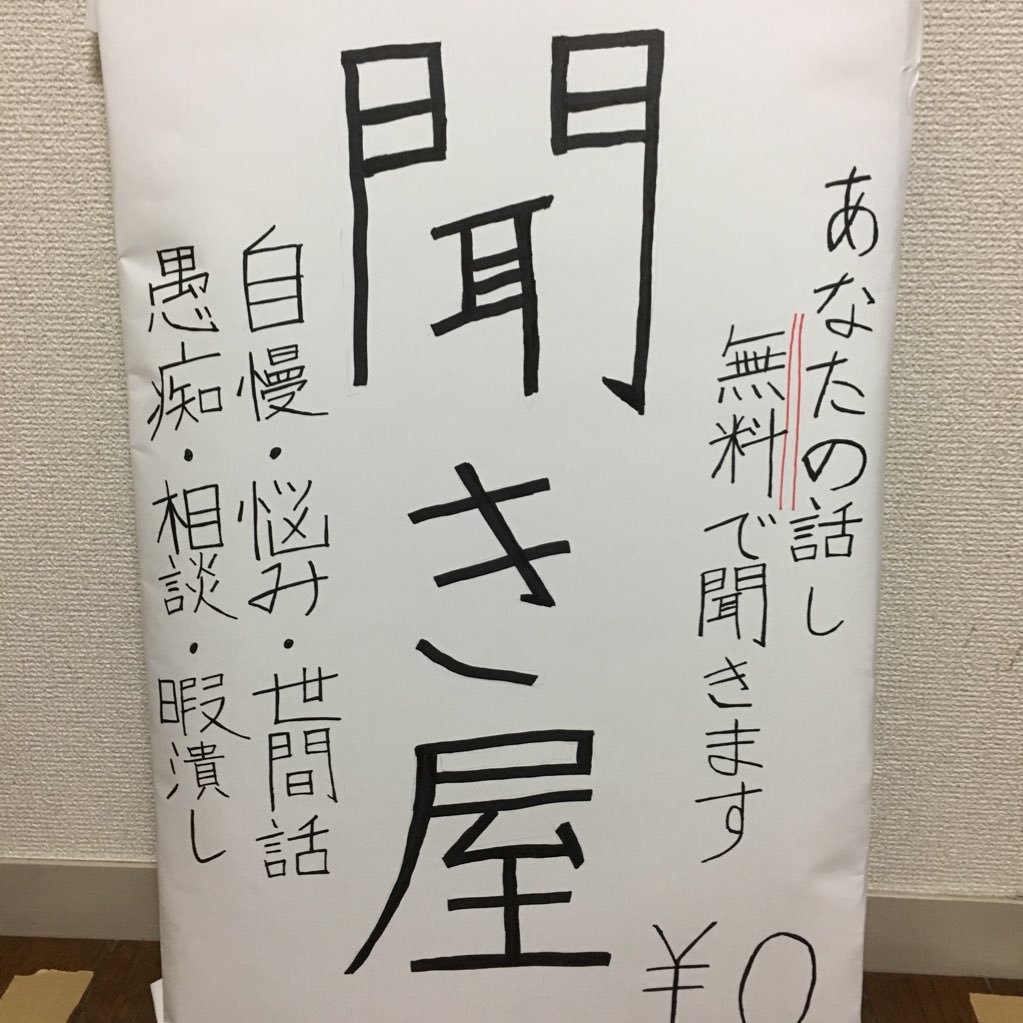 あなたの話し
無料で聞きます
聞き屋
自慢・悩み・世間話
愚痴・相談・暇潰し
¥0